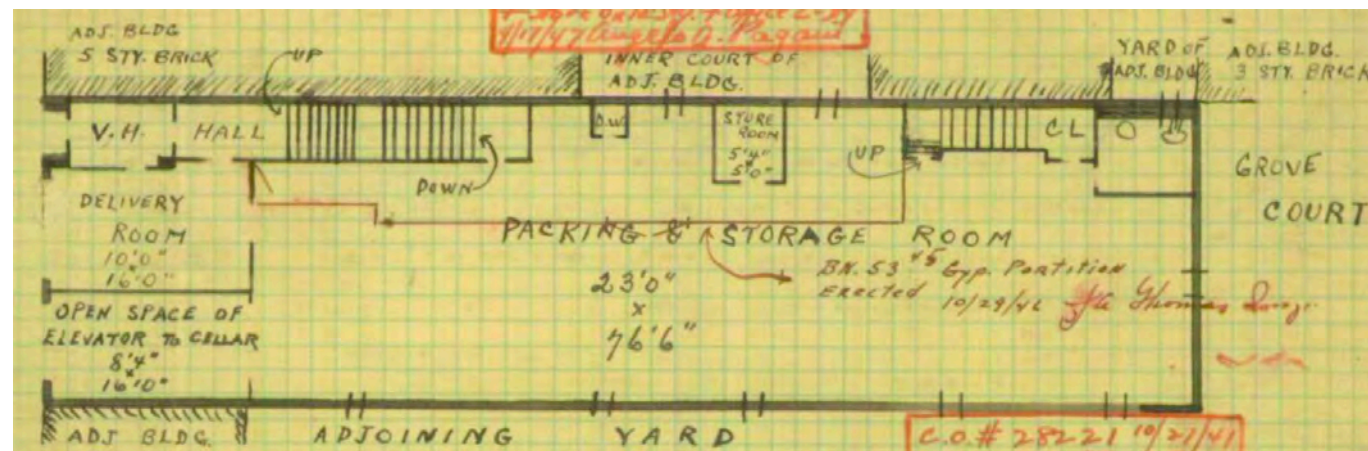 4/17/47 Angelo A. Pagani
ADJ. BLDG
5 STY. BRICK
UP
INNER COURT OF
ADJ. BLDG.
YARD OF
ADJ. BLDG
ADJ. BLDG.
3 STY. BRICK
V.H.
HALL
D.W.
STORE
ROOM
5'4"
x
5'0"
UP
CL
DOWN
GROVE
COURT
DELIVERY
ROOM
10'0"
x
16'0"
PACKING & STORAGE ROOM
23'0"
x
76'6"
Gyp. Partition
Erected 10/29/46
OPEN SPACE OF
ELEVATOR TO CELLAR
8'4"
x
16'0"
ADJ BLDG.
ADJOINING YARD
C.O. # 28221 10/27/41